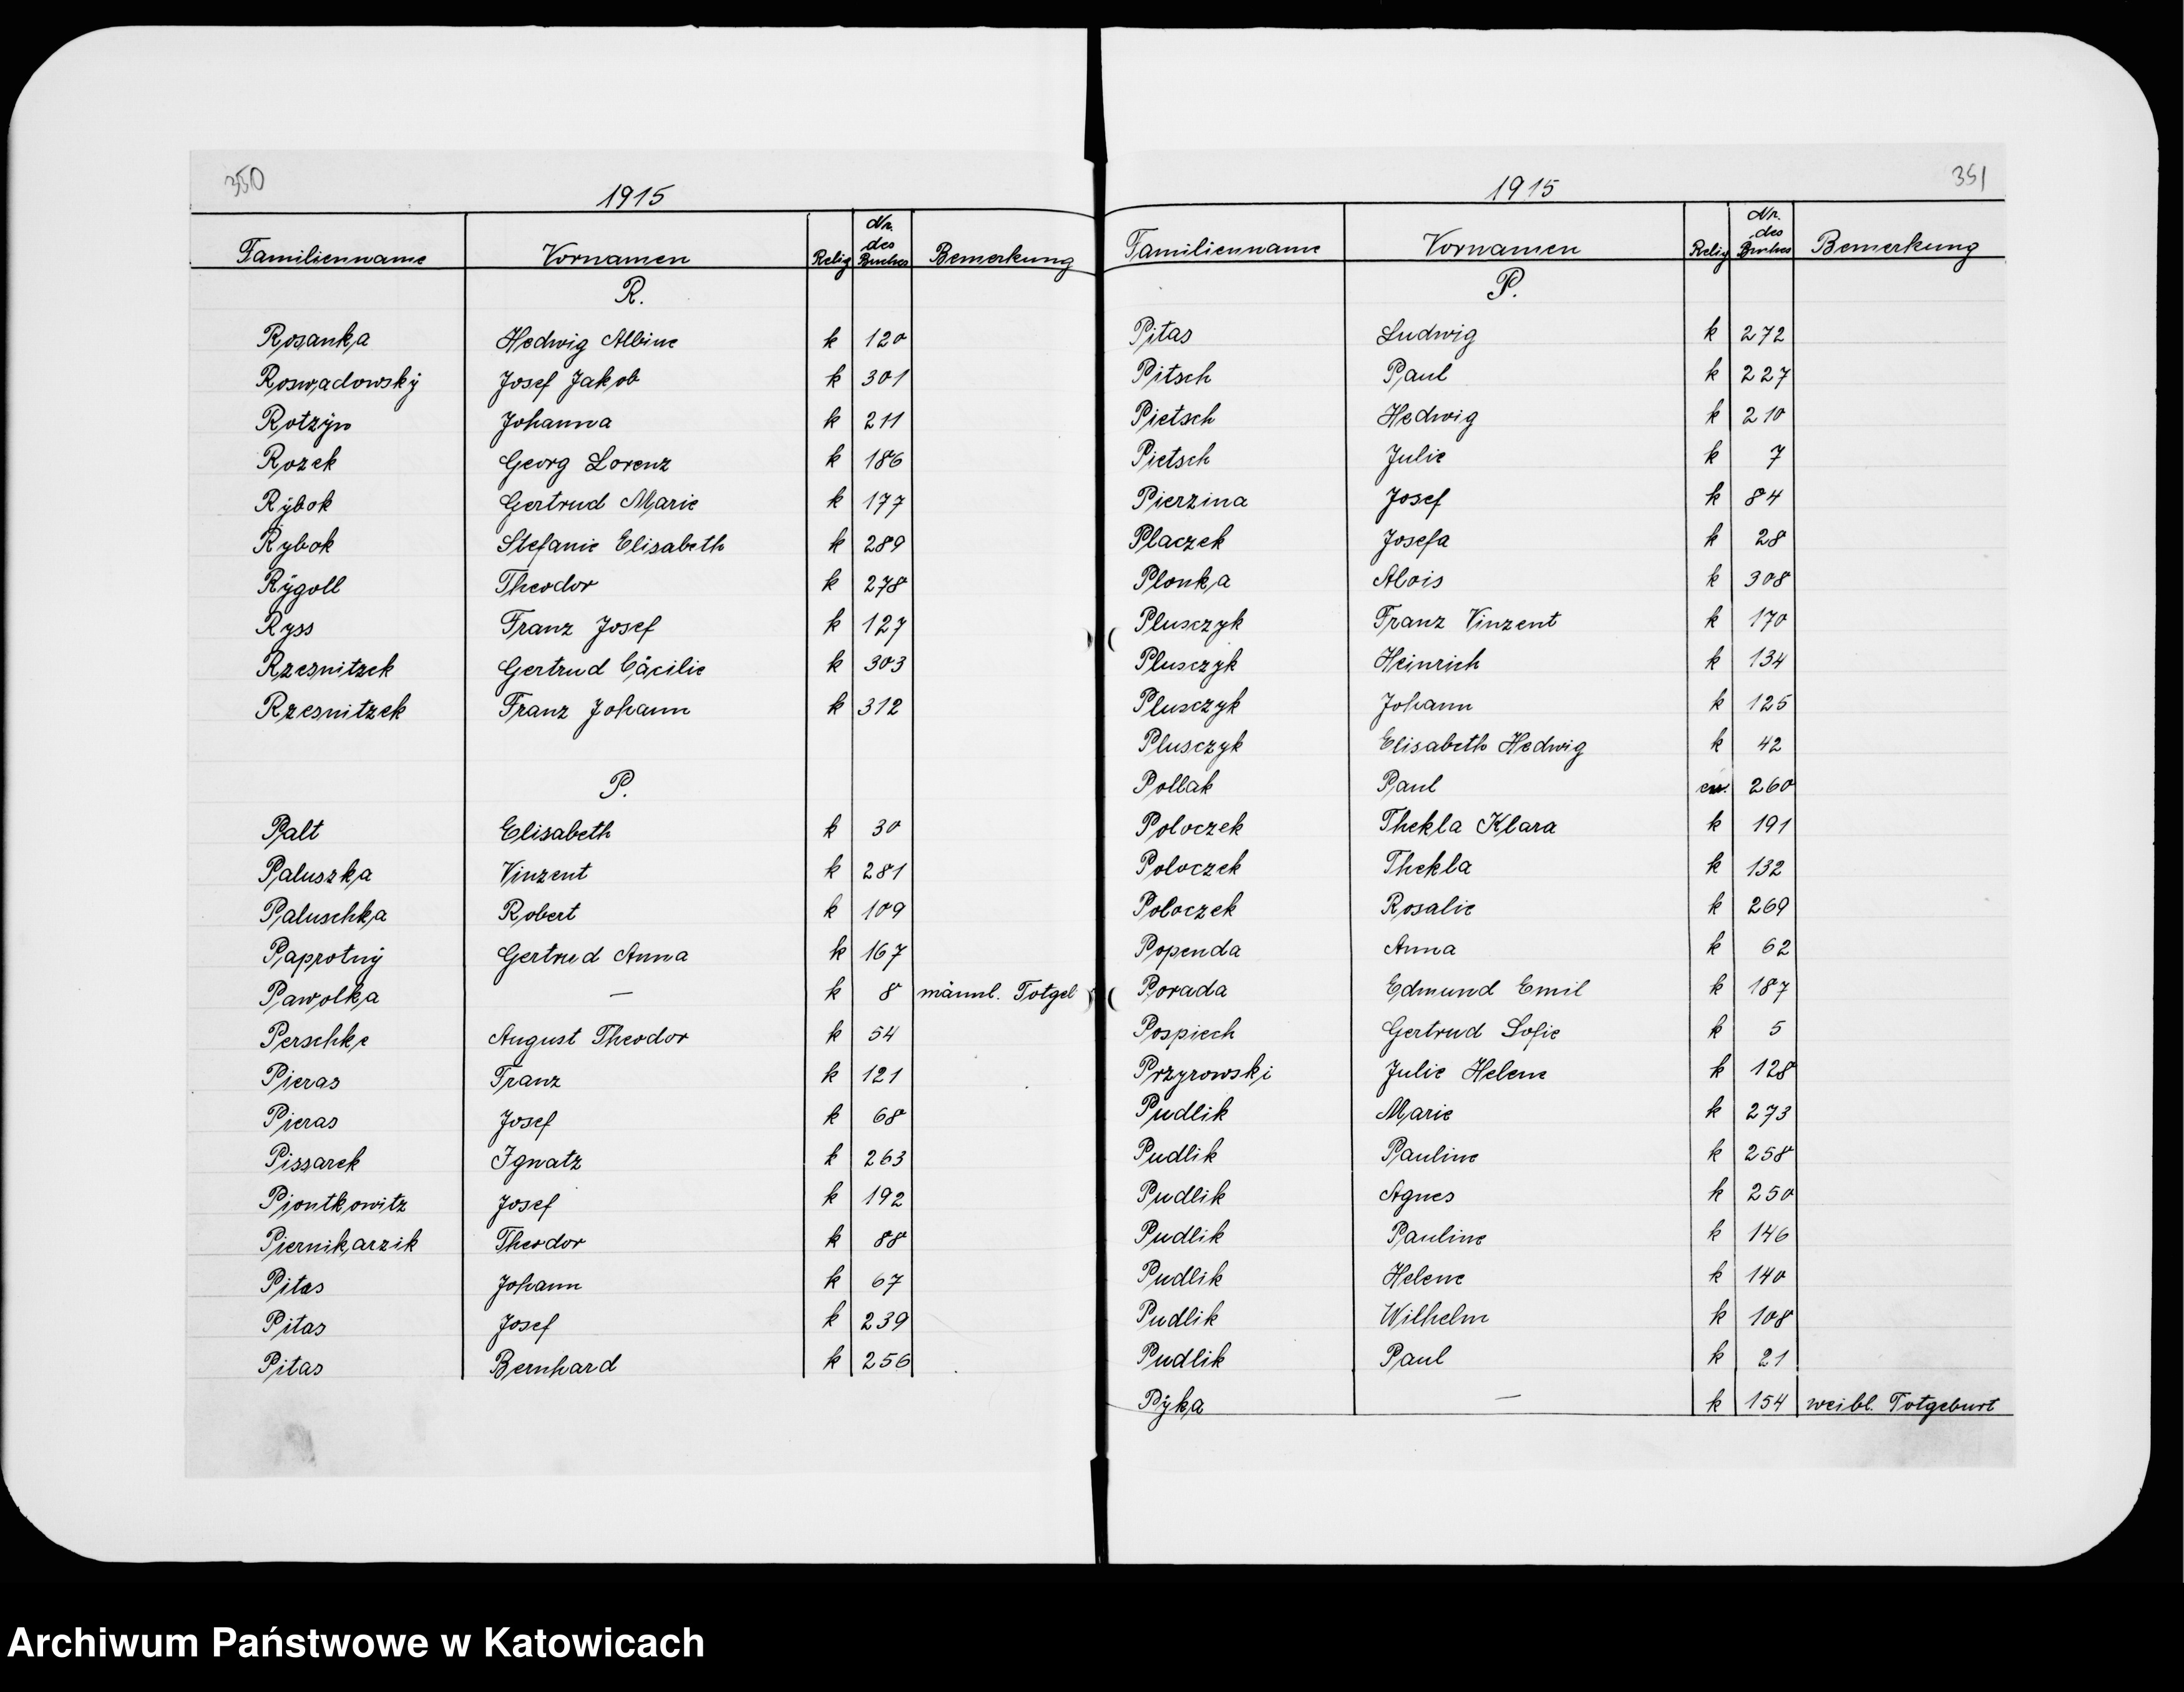 350
1915
Familienname Vornamen Relig Nr. des Buches Bemerkung
R.
Rosanka Hedwig Albine k 120
Roswadowskÿ Josef Jakob k 301
Rotzÿn Johanna k 211
Rozek Georg Lorenz k 186
Rÿbok Gertrud Marie k 177
Rybok Stefanie Elisabeth k 289
Rÿgoll Theodor k 278
Ryss Franz Josef k 127
Rzesnitzek Gertrud Cäcilie k 303
Rzesnitzek Franz Johann k 312
P.
Palt Elisabeth k 30
Paluszka Vinzent k 281
Paluschka Robert k 109
Paprotnÿ Gertrud Anna k 167
Pawolka — k 8 männl. Totgel
Perschke August Theodor k 54
Pieras Franz k 121
Pieras Josef k 68
Pissarek Ignatz k 263
Piontkowitz Josef k 192
Piernikarzik Theodor k 88
Pitas Johann k 67
Pitas Josef k 239
Pitas Bernhard k 256
351
1915
Familienname Vornamen Relig Nr. des Buches Bemerkung
P.
Pitas Ludwig k 272
Pitsch Paul k 227
Pietsch Hedwig k 210
Pietsch Julie k 7
Pierzina Josef k 84
Placzek Josefa k 28
Plonka Alois k 308
Plusczyk Franz Vinzent k 170
Plusczyk Heinrich k 134
Plusczyk Johann k 125
Plusczyk Elisabeth Hedwig k 42
Pollak Paul ev. 260
Poloczek Thekla Klara k 191
Poloczek Thekla k 132
Poloczek Rosalie k 269
Popenda Anna k 62
Porada Edmund Emil k 187
Pospiech Gertrud Sofie k 5
Przyrowski Julie Helene k 128
Pudlik Marie k 273
Pudlik Pauline k 258
Pudlik Agnes k 250
Pudlik Pauline k 146
Pudlik Helene k 140
Pudlik Wilhelm k 108
Pudlik Paul k 21
Pÿka — k 154 weibl. Totgeburt
Archiwum Państwowe w Katowicach